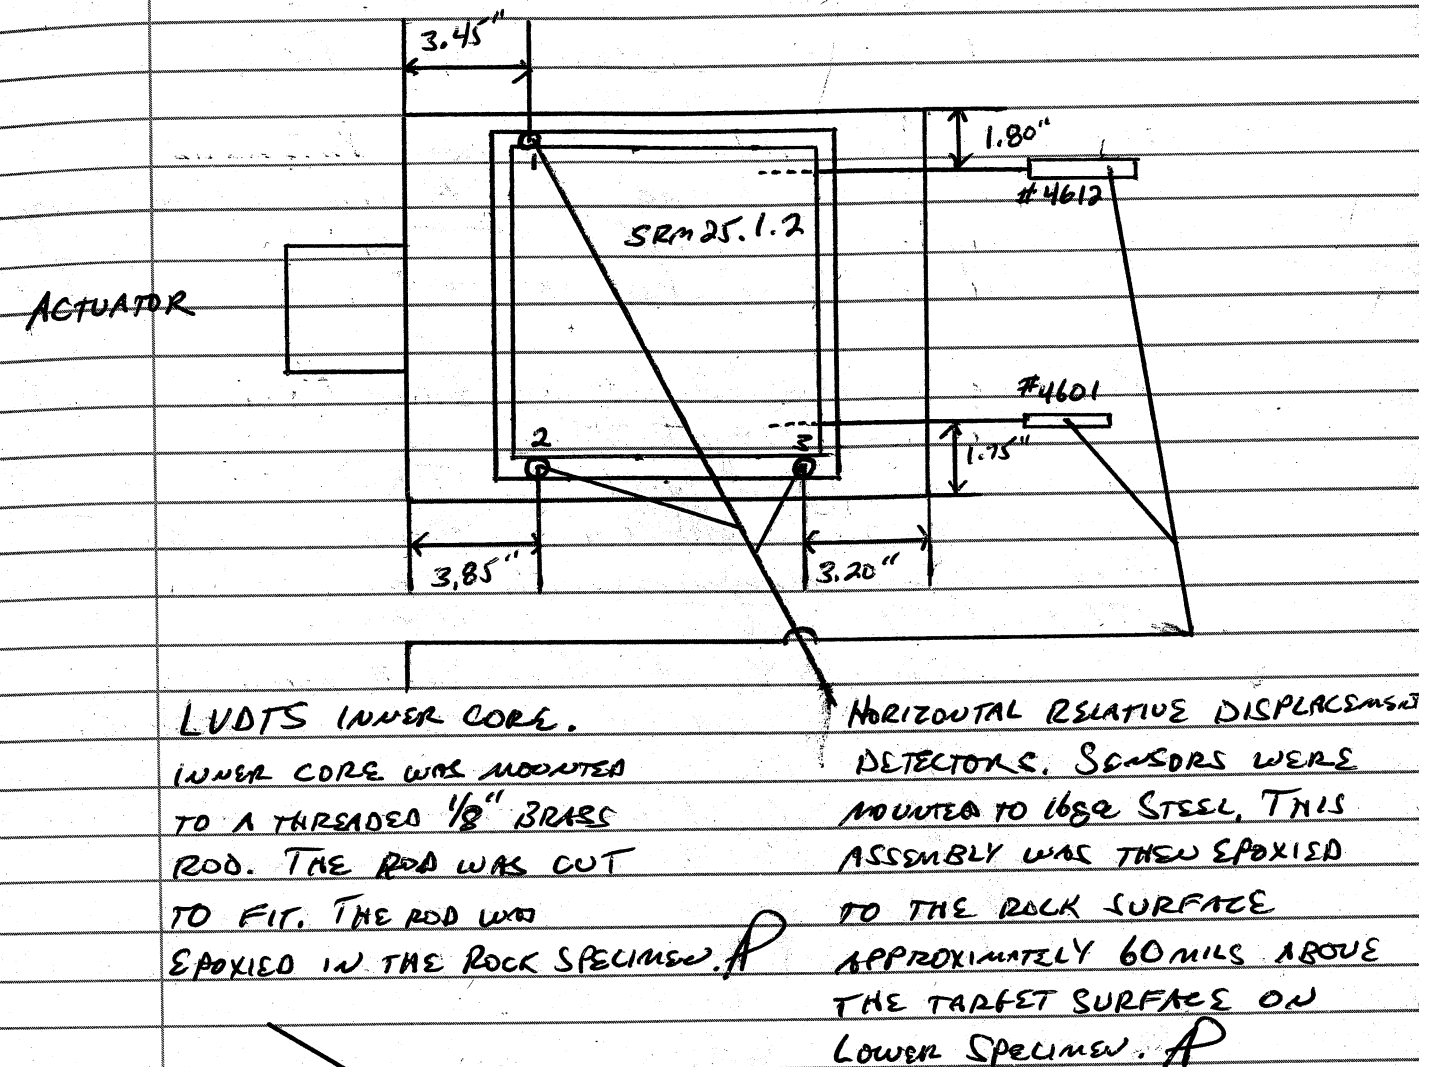 3.45"
1.80"
1
#4612
SRM 25.1.2
ACTUATOR
#4601
2
3
1.75"
3.85"
3.20"
LVDTS INNER CORE.
INNER CORE WAS MOUNTED
TO A THREADED 1/8" BRASS
ROD. THE ROD WAS CUT
TO FIT. THE ROD WAS
EPOXIED IN THE ROCK SPECIMEN.
HORIZONTAL RELATIVE DISPLACEMENT
DETECTORS. SENSORS WERE
MOUNTED TO 16ga STEEL. THIS
ASSEMBLY WAS THEN EPOXIED
TO THE ROCK SURFACE
APPROXIMATELY 60 MILS ABOVE
THE TARGET SURFACE ON
LOWER SPECIMEN.